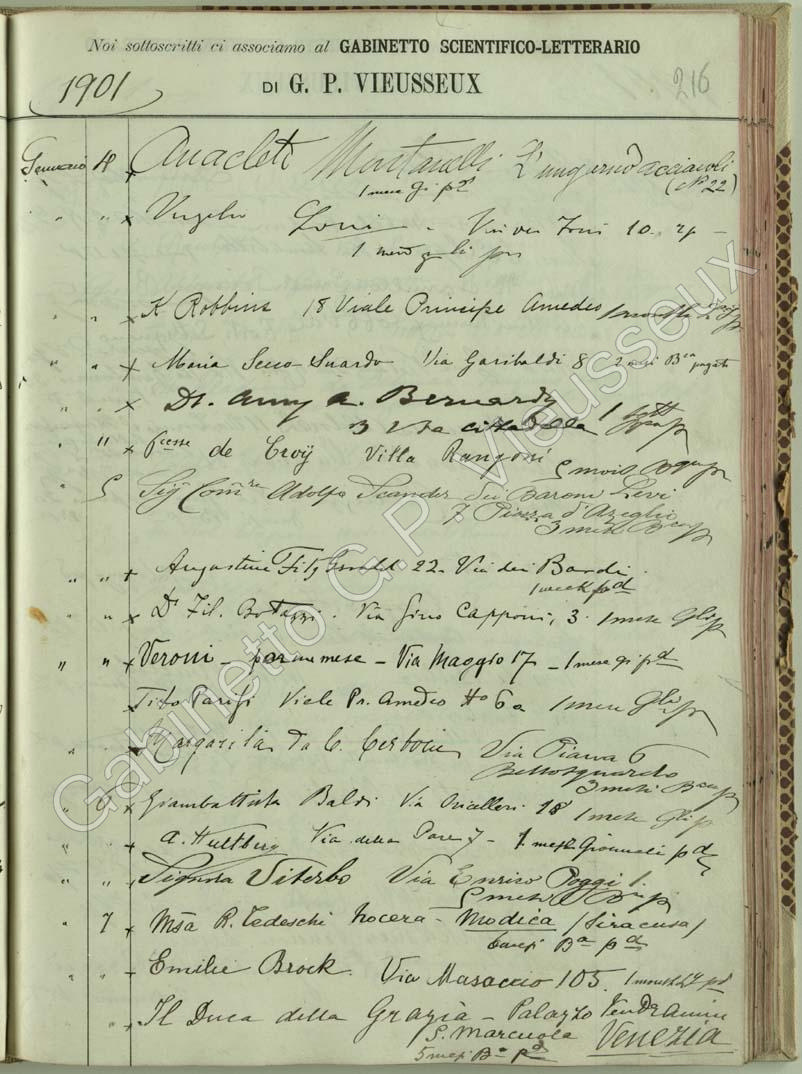 Noi sottoscritti ci associamo al GABINETTO SCIENTIFICO-LETTERARIO
1901 DI G. P. VIEUSSEUX 216
Gennaio 4 Anacleto Montanelli L'ungarno Acciaioli
1 mese gi pd (No 22)
" " x Virgilio 10.
1 mese
" " x K Robbins 18 Viale Principe Amedeo 1 month
" " x Maria Secco-Suardo Via Garibaldi 8 2 mesi Bca pagato
" x Dr. Amy A. Bernardy
3 Via Cittadella 1
" " x Pcesse de Croÿ Villa Rangoni
5 mois
" 5 Adolfo Scander dei Baroni Levi
7 Piazza d'Azeglio
3 mesi
" " x Augustine FitzGerald 22 Via dei Bardi
1 week pd
" " x Dr Fil. Bottazzi. Via Gino Capponi, 3. 1 mese Gli p
" " x Veroni - per un mese - Via Maggio 17 - 1 mese gi pd
Tito Parisi Viale Pr. Amedeo No 6a 1 mese Gli p
" x Margarita da C. Via Piana 6
Bellosguardo
3 mesi
" 6 x Giambattista Baldi Via Oricellari 18 1 mese Gli p
" " x A. Hultberg Via della Pace 7 - 1 mese Giornali pd
" " x Signora Viterbo Via Enrico Poggi 1.
5 mesi
" 7 x R. Tedeschi Nocera - Modica (Siracusa)
Ba pd
" " x Emilie Brock. Via Masaccio 105. 1 month pd
" x Il Duca della Grazia - Palazzo Vendramin
S. Marcuola Venezia
5 mesi Ba pd
Gabinetto G. P. Vieusseux